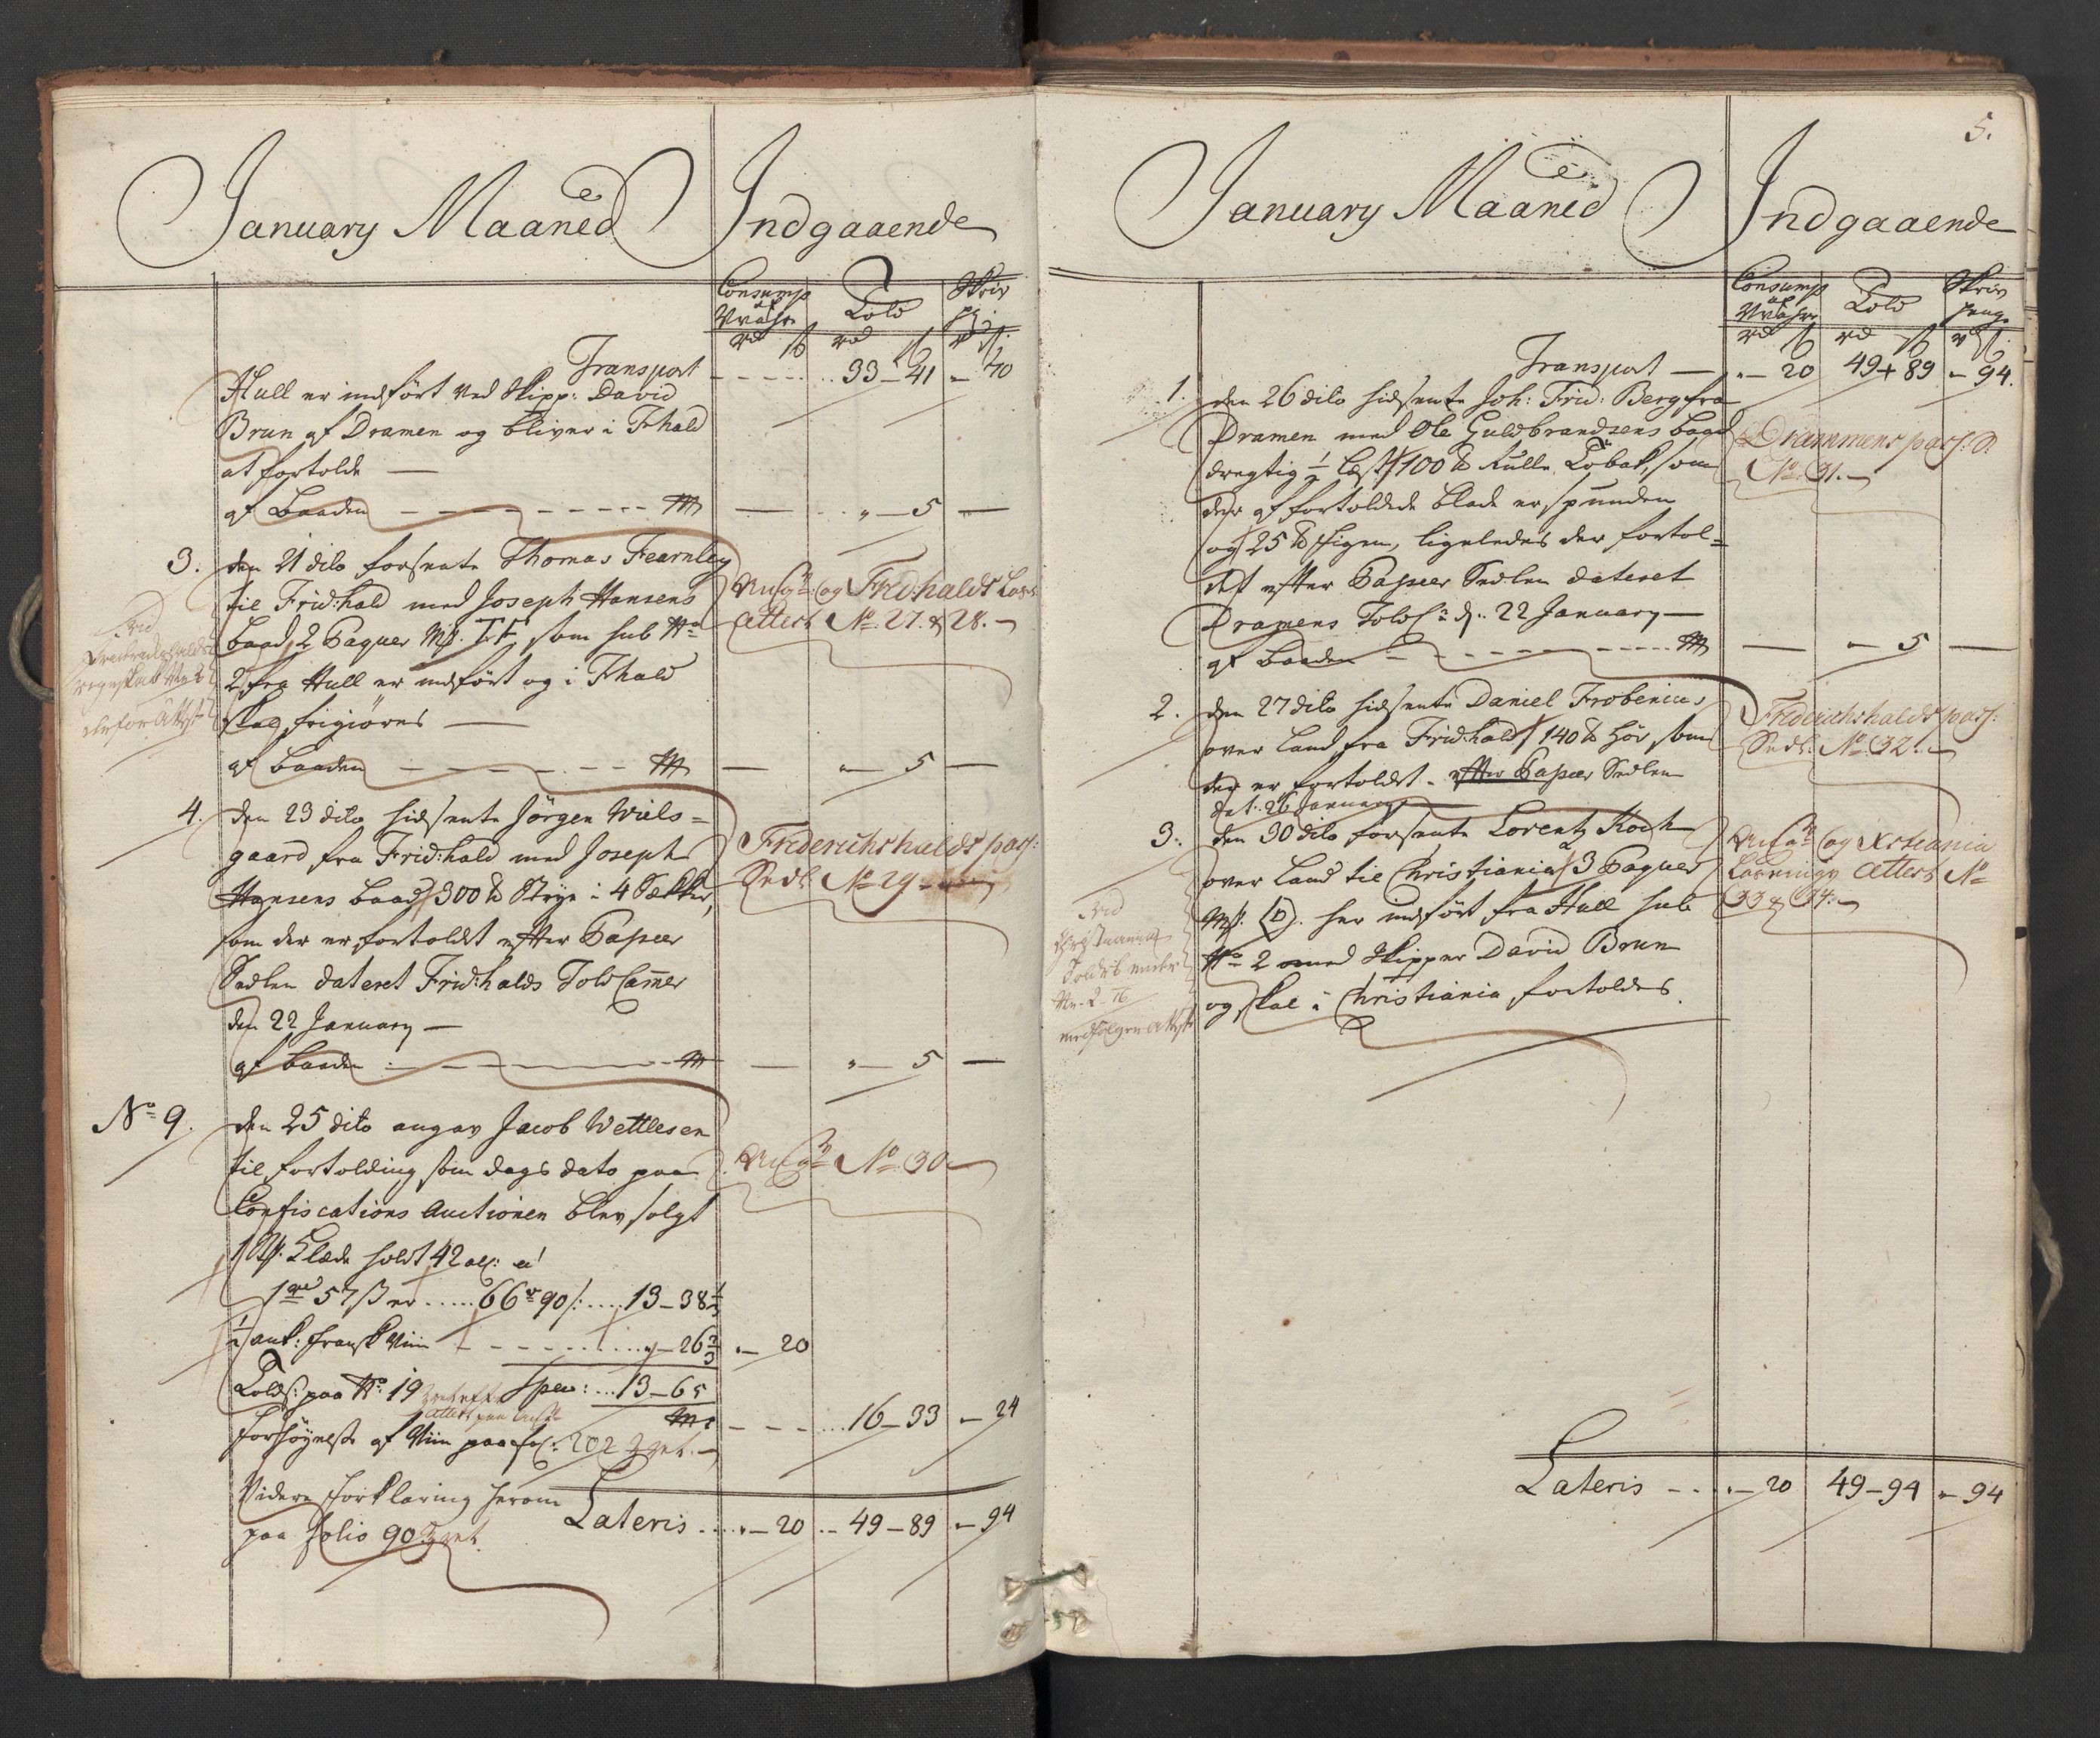 January Maaned Indgaaende
Consump af Vrahr Told Skriv p:
rd ß rd ß rd ß
Transport 33-41 - 70
Hull er indført ved Skipp: David
Brun af Dramen og bliver i Fhald
at fortolde
af Baaden - 5
3. den 21 dito forsente Thomas Fearnley
til Frid:hald med Joseph Hansens
Baad, 2 Paquer Mk. T.F. som sub No
2 fra Hull er indført og i Fhald
skal frigiøres
og Fridhalds
Attest No 27 & 28.
af Baaden - 5
4. den 23 dito hidsente Jørgen Wiels=
gaard fra Frid:hald med Joseph
Hansens Baad 300 ℔ Strye i 4 Sækker,
som der er fortoldt efter Passeer
Sedlen dateret Frid:halds Told Camer
den 22 January
Friderichshalds pass:
Sedl: No 29
af Baaden - 5
No 9. den 25 dito angav Jacob Wettlesen
til fortolding som dags dato paa
Confiscations Auctionen blev solgt
No 30
1 St. Klæde holdt 42 al: a
1 rd 57 ß er ..... 66 r 90 ß ..... 13-38 1/3
1/2 ank: fransk Viin - 26 2/3 - 20
Tolds: paa No 19 Spec: ... 13-65
16-33 - 24
Forhøyelse af Viin paa fol: 202
Videre Forklaring herom
paa folio 90
Lateris - 20 49-89 - 94
5.
January Maaned Indgaaende
Consump af Vrahr Told Skriv penge
rd ß rd ß rd ß
Transport - 20 49-89 - 94.
1. den 26 dito hidsente Joh: Frid: Berg fra
Dramen med Ole Guldbrandsens Baad
drægtig 1/2 Læst 100 ℔ Rulle Tobak, som
der af fortoldede Blade er spunden
og 25 ℔ figen, ligeledes der fortol=
det efter Passeer Sedlen dateret
Dramens Told d: 22 January
Drammens pass: S:
No 31.
af Baaden - 5
2. den 27 dito hidsente Daniel Frobenius
over Land fra Frid:hald 140 ℔ Hør, som
der er fortoldet - efter Passeer Sedlen
dat: 26 January
Friderichshalds pass:
Sedl: No 32.
3. den 30 dito forsente Lorentz Koch
over Land til Christiania 3 Paquer
Mk: her indført fra Hull sub
No 2 med Skipper David Brun
og skal i Christiania fortoldes.
og Xstiania
Attest No
33 & 34.
Lateris - 20 49-94 - 94